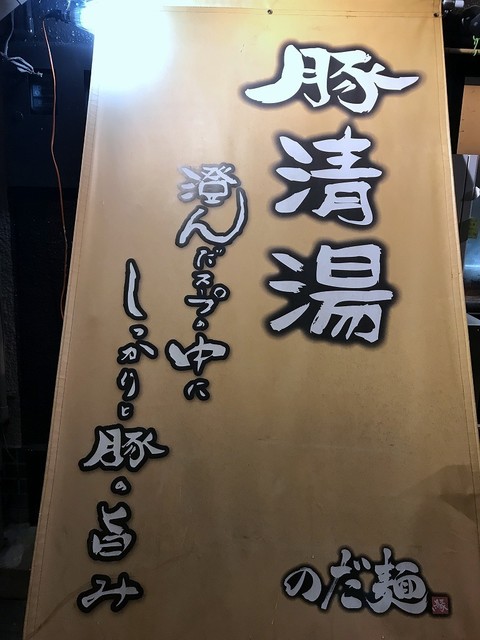 豚清湯
澄んだスープの中に
しっかりと豚の旨み
のだ麺